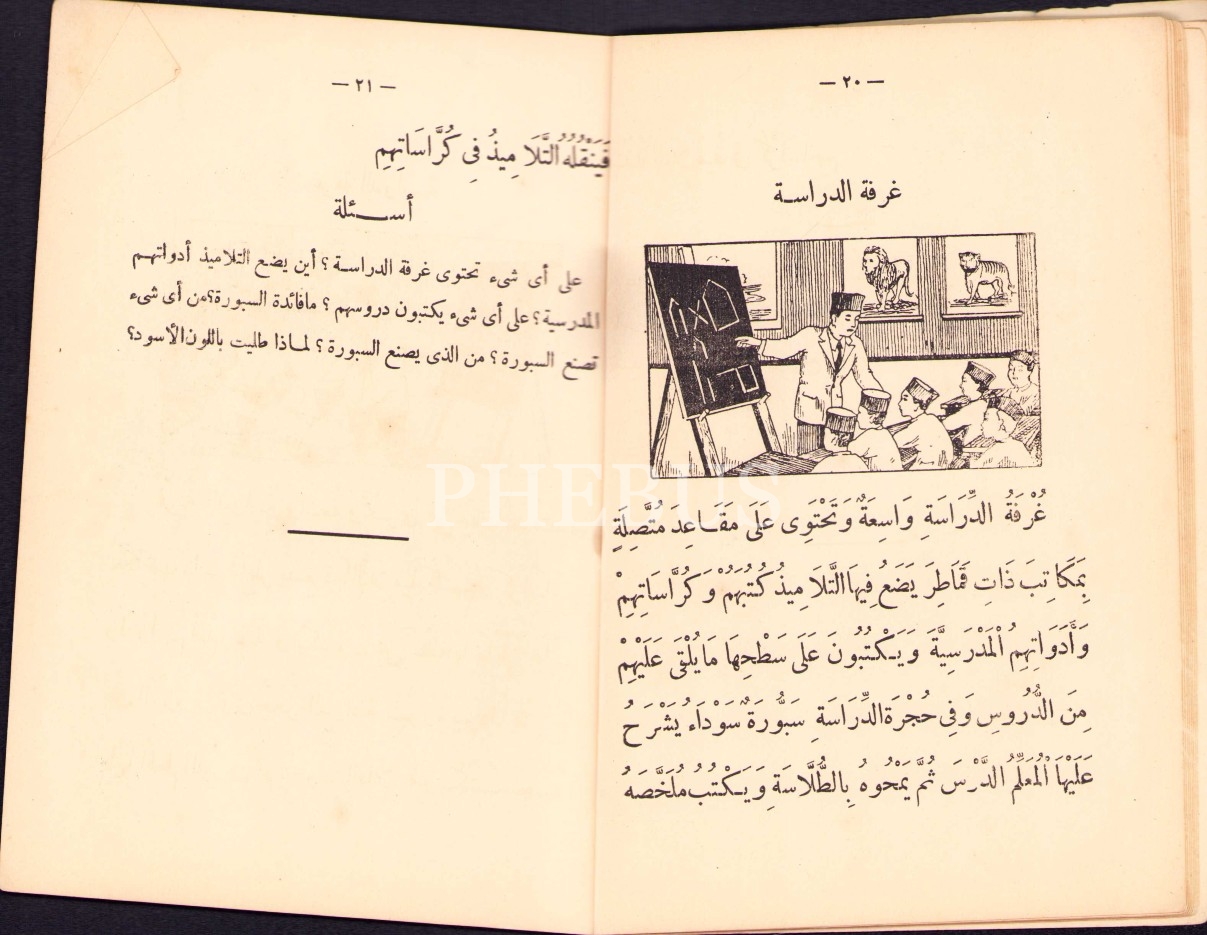 — ٢٠ —
غرفة الدراسة
غُرْفَةُ الدِّرَاسَةِ وَاسِعَةٌ وَتَحْتَوِى عَلَى مَقَاعِدَ مُتَّصِلَةٍ
بِمَكَاتِبَ ذَاتِ قَمَاطِرَ يَضَعُ فِيهَا التَّلَامِيذُ كُتُبَهُمْ وَكُرَّاسَاتِهِمْ
وَأَدَوَاتِهِمُ الْمَدْرَسِيَّةَ وَيَكْتُبُونَ عَلَى سَطْحِهَا مَا يُلْقَى عَلَيْهِمْ
مِنَ الدُّرُوسِ وَفِى حُجْرَةِ الدِّرَاسَةِ سَبُّورَةٌ سَوْدَاء يَشْرَحُ
عَلَيْهَا الْمُعَلِّمُ الدَّرْسَ ثُمَّ يَمْحُوهُ بِالطَّلَّاسَةِ وَيَكْتُبُ مُلَخَّصَهُ
— ٢١ —
فَيَنْقُلُهُ التَّلَامِيذُ فِى كُرَّاسَاتِهِم
أسئلة
على أى شىء تحتوى غرفة الدراسة؟ أين يضع التلاميذ أدواتهم
المدرسية؟ على أى شىء يكتبون دروسهم؟ مافائدة السبورة؟ من أى شىء
تصنع السبورة؟ من الذى يصنع السبورة؟ لماذا طليت باللون الأسود؟
PHEBUS